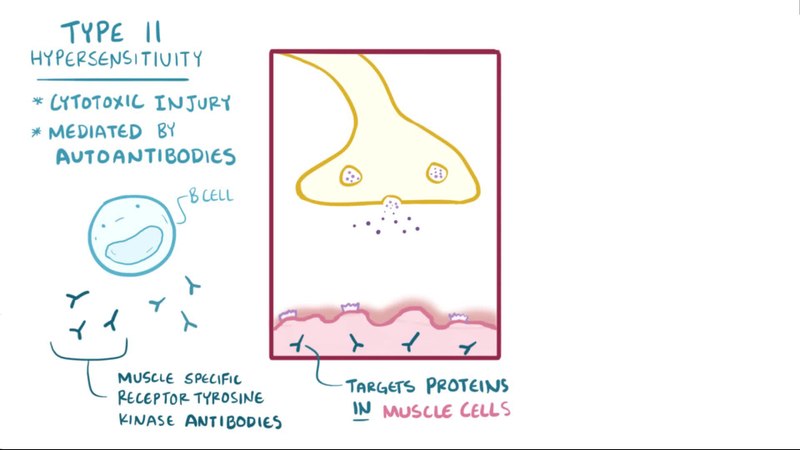 TYPE II
HYPERSENSITIVITY
* CYTOTOXIC INJURY
* MEDIATED BY
AUTOANTIBODIES
B CELL
MUSCLE SPECIFIC
RECEPTOR TYROSINE
KINASE ANTIBODIES
TARGETS PROTEINS
IN MUSCLE CELLS